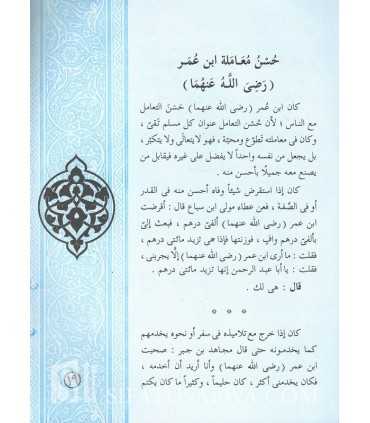 حُسْنُ مُعَامَلة ابن عُمَر
(رَضِىَ اللَّـهُ عَنهُمَا)
كان ابن عُمر (رضى الله عنهما) حَسَنَ التعامل
مع الناس؛ لأن حُسْن التعامل عنوان كل مسلم تَقىّ،
وكان فى معاملته تطوّع ومحبّة، فهو لايتعالَى ولايتكبّر،
بل يجعل من نفسه واحداً لا يفضل على غيره فيقابل من
يصنع معه جميلًا بأحسن منه.
كان إذا استقرض شيئاً وفاه أحسن منه فى القدر
أو فى الصِّفة، فعن عطاء مولى ابن سباع قال: أقرضت
ابن عمر (رضى الله عنهما) ألفَىْ درهم، فبعث إلىّ
بألفىْ درهم وافٍ، فوزنتها فإذا هى تزيد مائتى درهم،
فقلت: ما أرى ابن عمر (رضى الله عنهما) إلَّا يجربنى،
فقلت: يا أبا عبد الرحمن إنها تزيد مائتى درهم.
قال: هى لك.
* * *
كان إذا خرج مع تلاميذه فى سفر أو نحوه يخدمهم
كما يخدمونه حتى قال مجاهد بن جبر: صحبت
ابن عمر (رضى الله عنهما) وأنا أريد أن أخدمه،
فكان يخدمنى أكثر، كان حليماً، وكثيراً ما كان يكتم
١٩